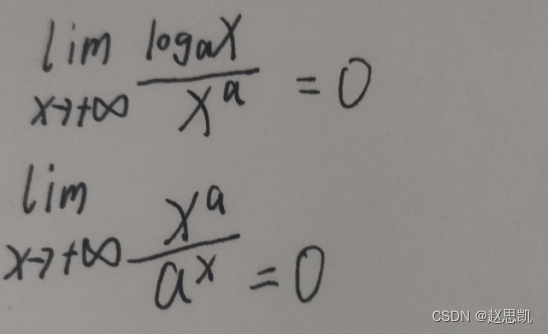 lim x→+∞ logaX / X^a = 0
lim x→+∞ X^a / a^x = 0
CSDN @赵思凯